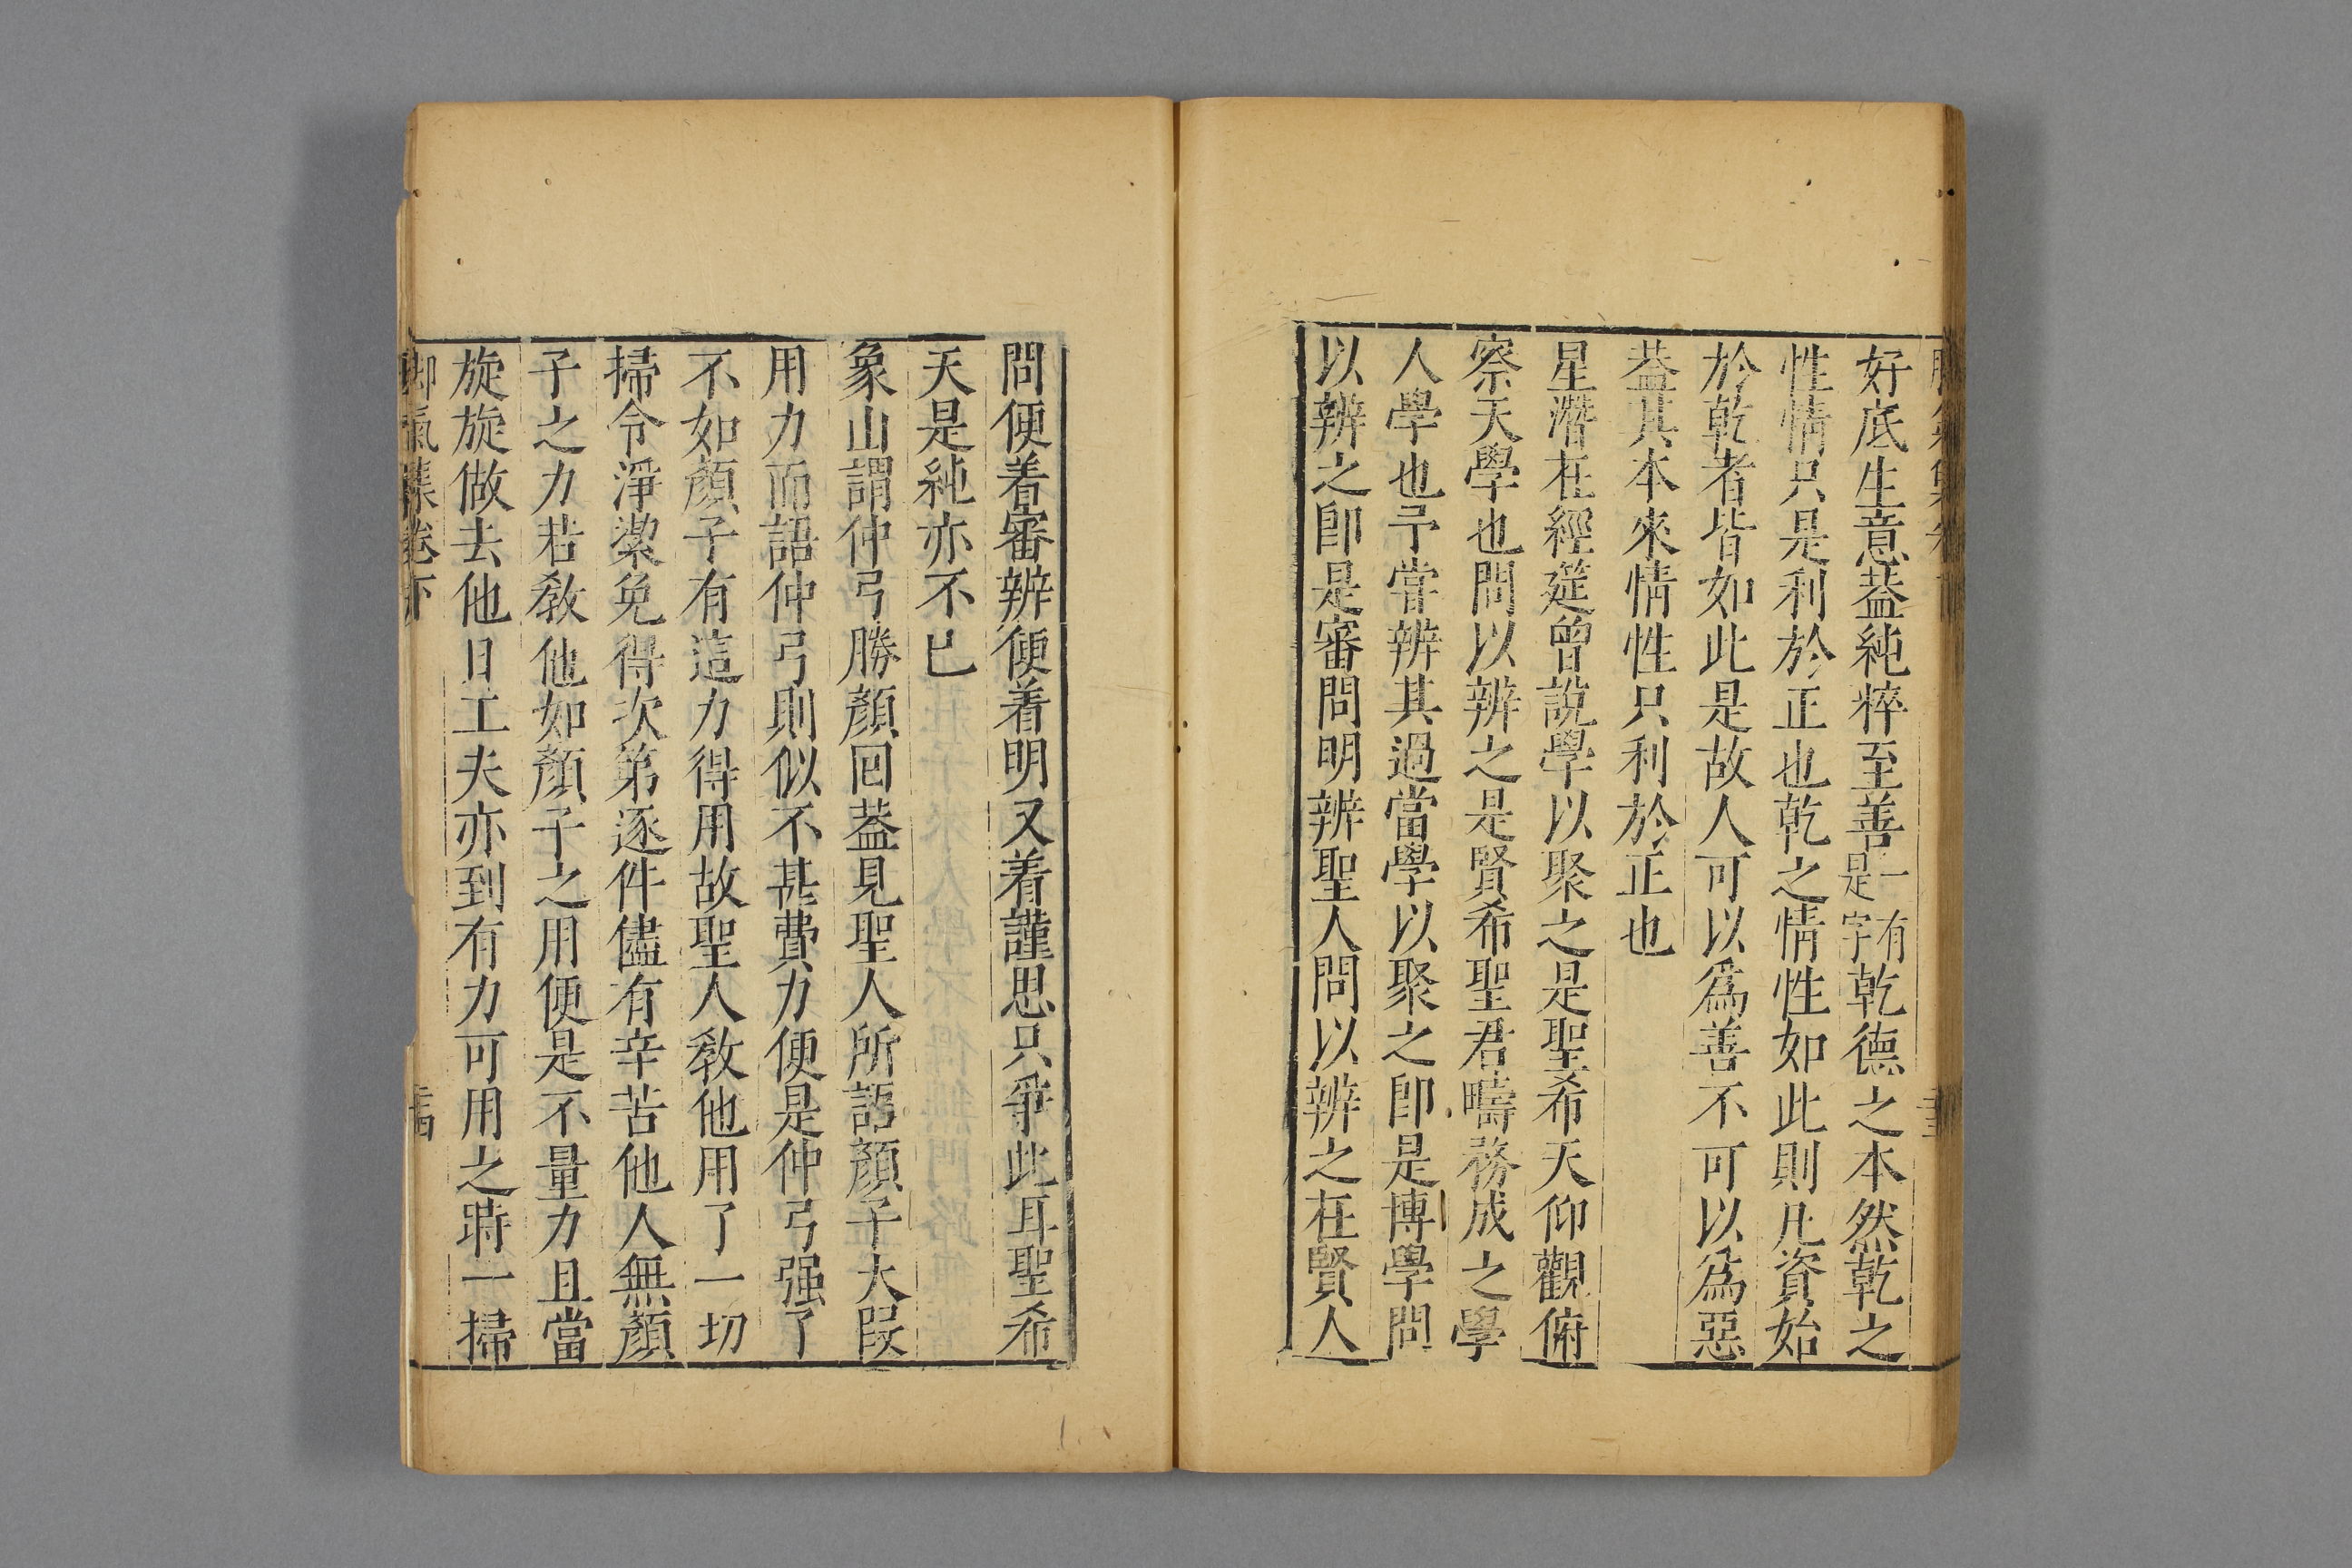 好底生意葢純粹至善一有是字乾德之本然乾之
性情只是利於正也乾之情性如此則凡資始
於乾者皆如此是故人可以爲善不可以爲惡
葢其本來情性只利於正也
星濳在經筵曾說學以聚之是聖希天仰觀俯
察天學也問以辨之是賢希聖君疇務成之學
人學也予當辨其過當學以聚之卽是博學問
以辨之卽是審問明辨聖人問以辨之在賢人
問便着審辨便着明又着謹思只爭此耳聖希
天是純亦不已
象山謂仲弓勝顏回葢見聖人所語顏子大段
用力而語仲弓則似不甚費力便是仲弓强了
不如顏子有這力得用故聖人敎他用了一切
掃令淨潔免得次第逐件儘有辛苦他人無顏
子之力若敎他如顏子之用便是不量力且當
旋旋做去他日工夫亦到有力可用之時一掃
脚氣集卷下